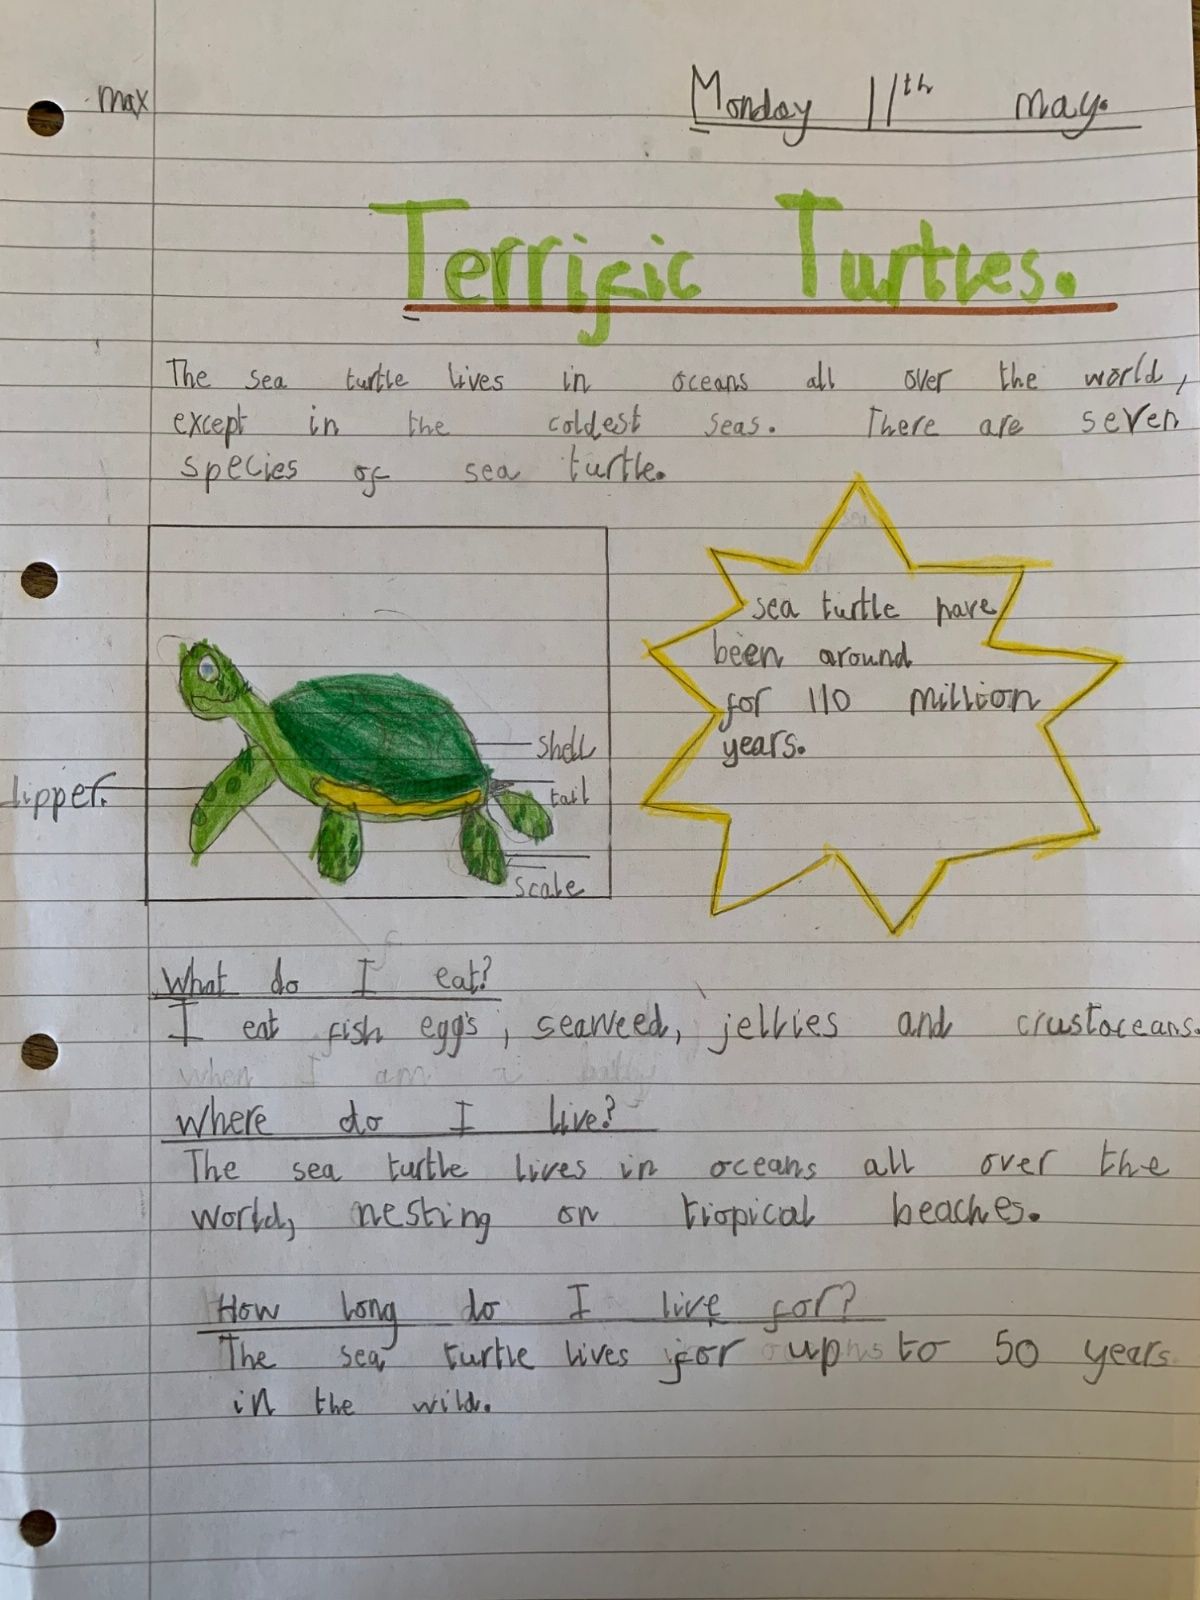 max
Monday 11th may.
Terrific Turtles.
The sea turtle lives in oceans all over the world,
except in the coldest seas. There are seven
species of sea turtle.
sea turtle have
been around
for 110 million
years.
shell
tail
lipper.
scale
What do I eat?
I eat fish eggs, seaweed, jellies and crustaceans.
when I am a
Where do I live?
The sea turtle lives in oceans all over the
world, nesting on tropical beaches.
How long do I live for?
The sea turtle lives for up to 50 years
in the wild.